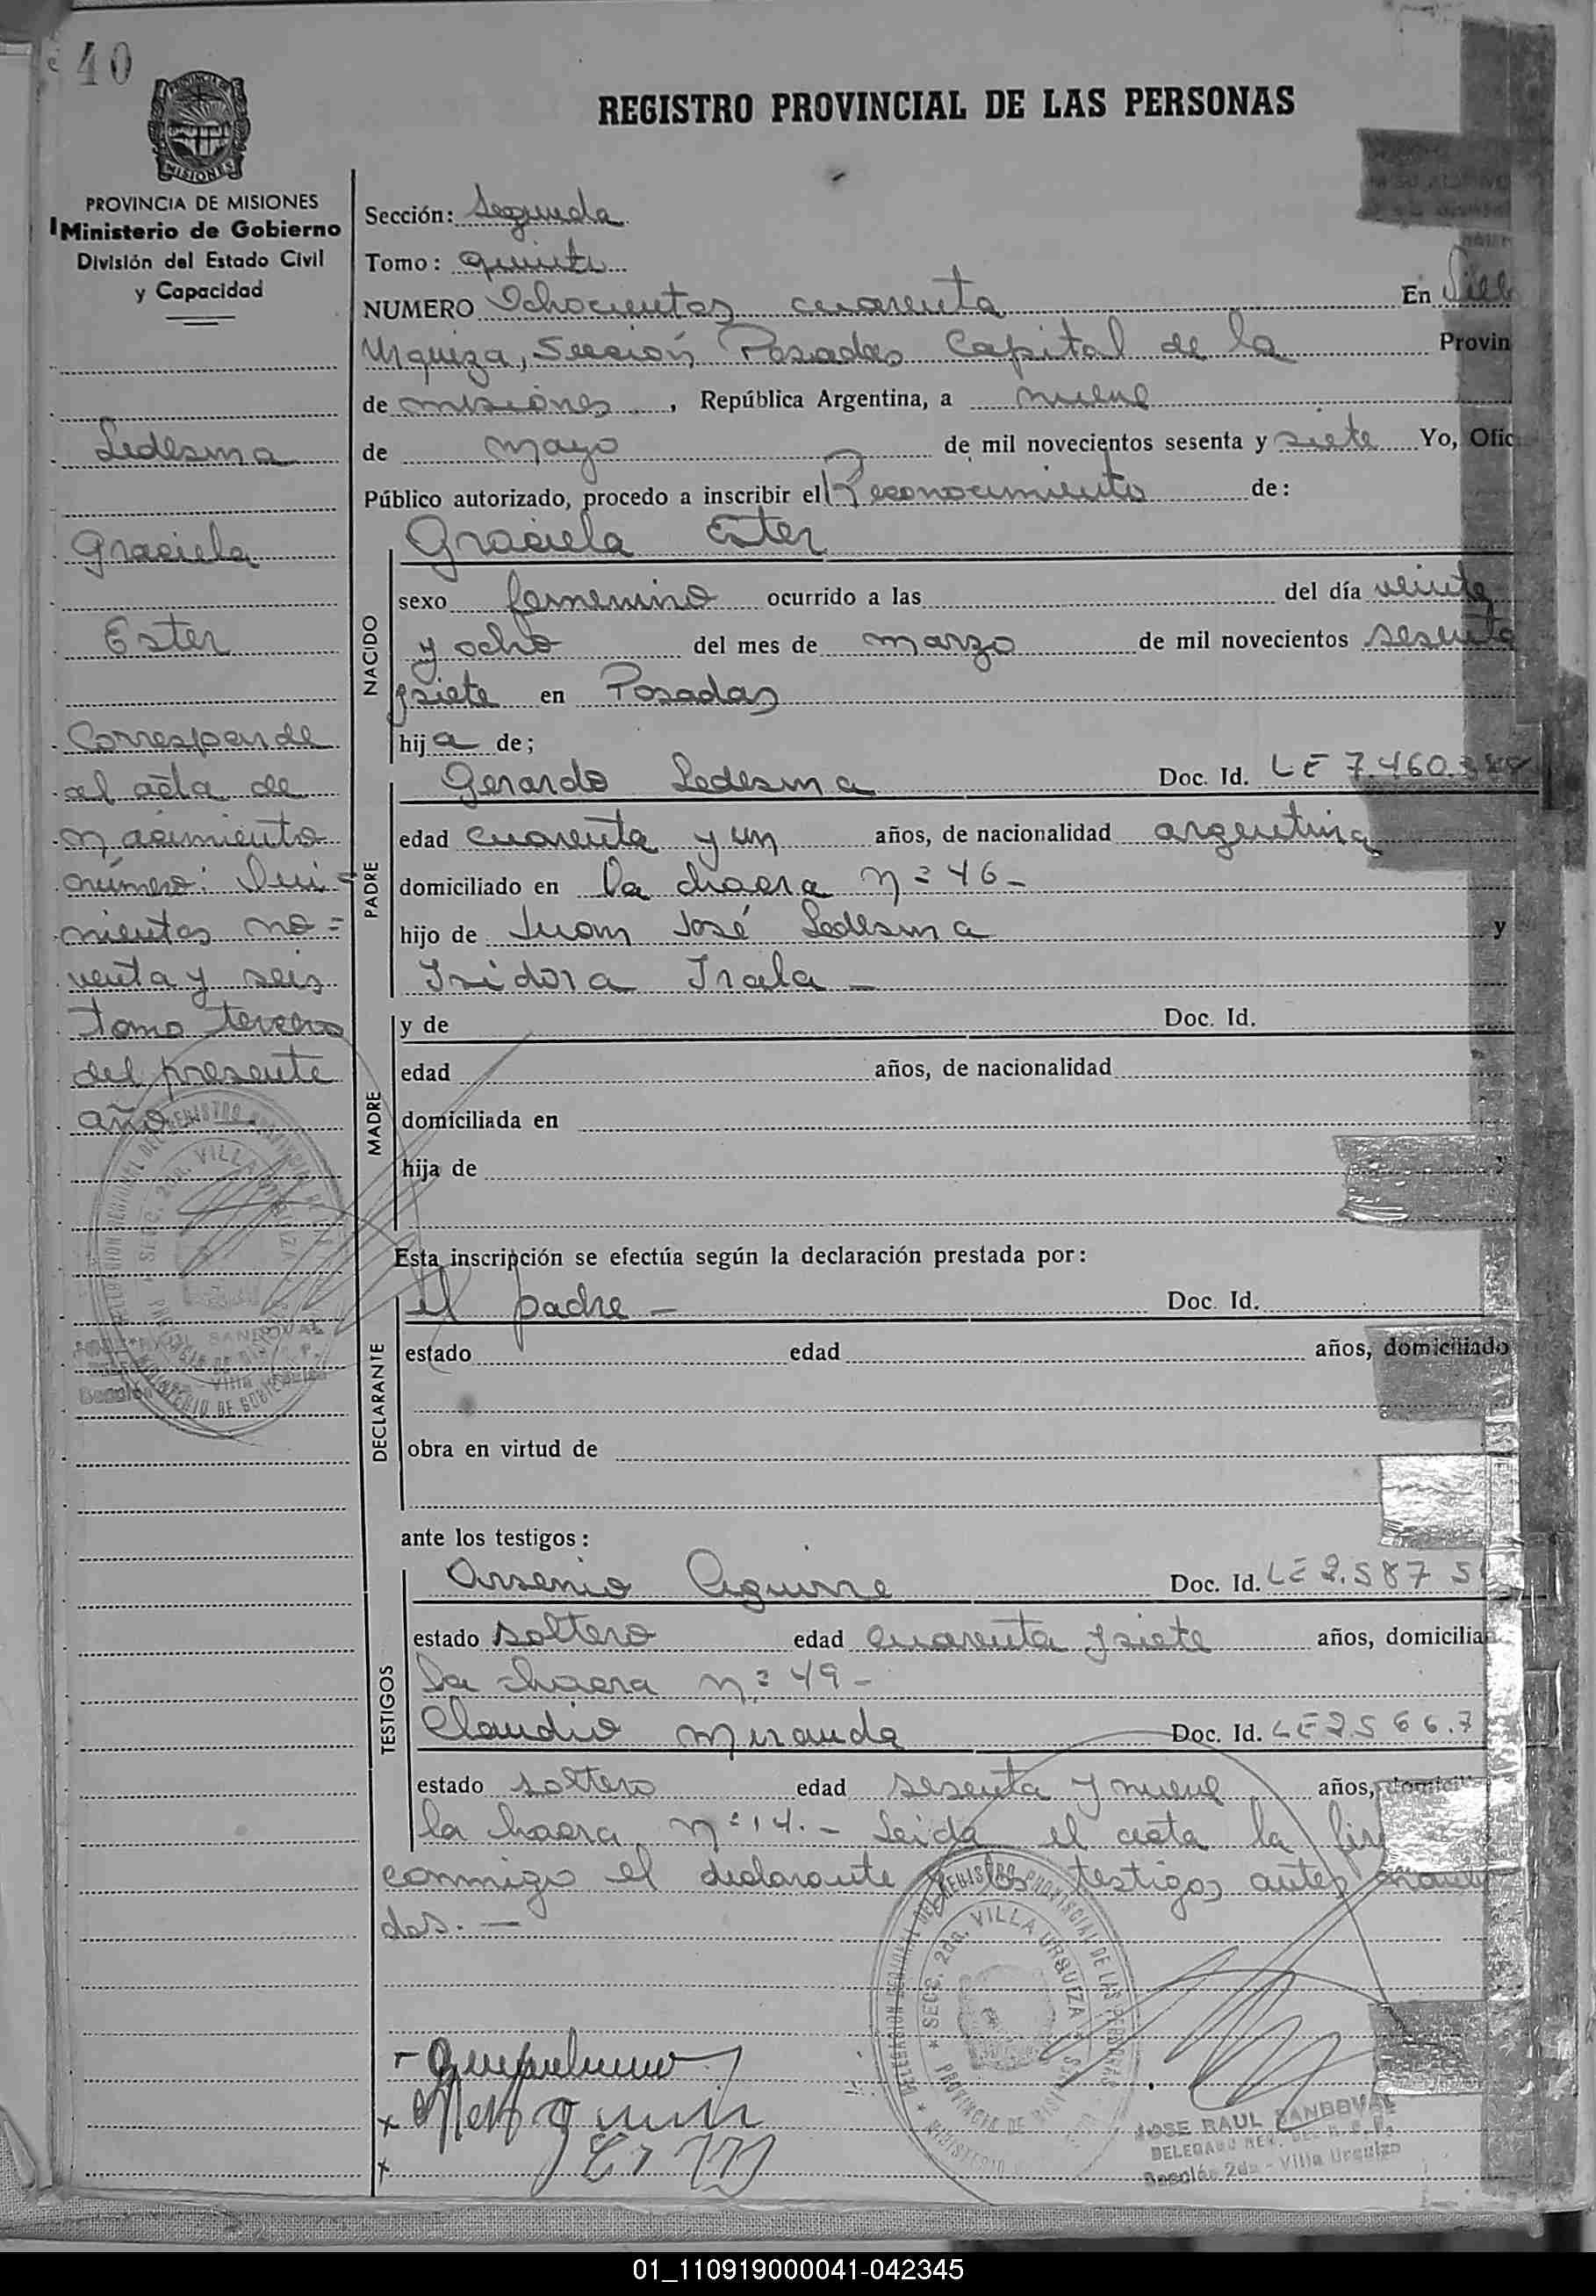 40
REGISTRO PROVINCIAL DE LAS PERSONAS
MISIONES
PROVINCIA DE MISIONES
Ministerio de Gobierno
División del Estado Civil
y Capacidad
Ledesma
Graciela
Ester
Corresponde
al acta de
nacimiento
número:
nientos no=
venta y seis
tomo tercero
del presente
año.
Sección: Segunda
Tomo: quinto
NUMERO Ochocientos cuarenta En Vill
Urquiza, Sección Posadas Capital de la Provin
de misiones, República Argentina, a nueve
de mayo de mil novecientos sesenta y siete Yo, Ofic
Público autorizado, procedo a inscribir el Reconocimiento de:
Graciela Ester
NACIDO
sexo femenino ocurrido a las del día veinte
y ocho del mes de marzo de mil novecientos sesenta
y siete en Posadas
hija de;
PADRE
Gerardo Ledesma Doc. Id. LE 7.460.
edad cuarenta y un años, de nacionalidad argentina
domiciliado en la chacra nº 46-
hijo de Juan José Ledesma y
Isidora Irala -
MADRE
y de Doc. Id.
edad años, de nacionalidad
domiciliada en
hija de
Esta inscripción se efectúa según la declaración prestada por:
DECLARANTE
el padre - Doc. Id.
estado edad años, domiciliado
obra en virtud de
ante los testigos:
TESTIGOS
Arsenio Aguirre Doc. Id. LE 2.587 5
estado soltero edad cuarenta y siete años, domicilia
la chacra nº 49-
Claudio Miranda Doc. Id. LE 2.566.7
estado soltero edad sesenta y nueve años,
la chacra nº 14.- Leida el acta la fir
conmigo el declarante y los testigos antes
dos.-
DELEGACION REGIONAL DEL REGISTRO PROVINCIAL DE LAS PERSONAS
SECC. 2da. VILLA URQUIZA
PROVINCIA DE MISIONES
JOSE RAUL SANDOVAL
DELEGADO
Sección 2da - Villa Urquiza
01_110919000041-042345